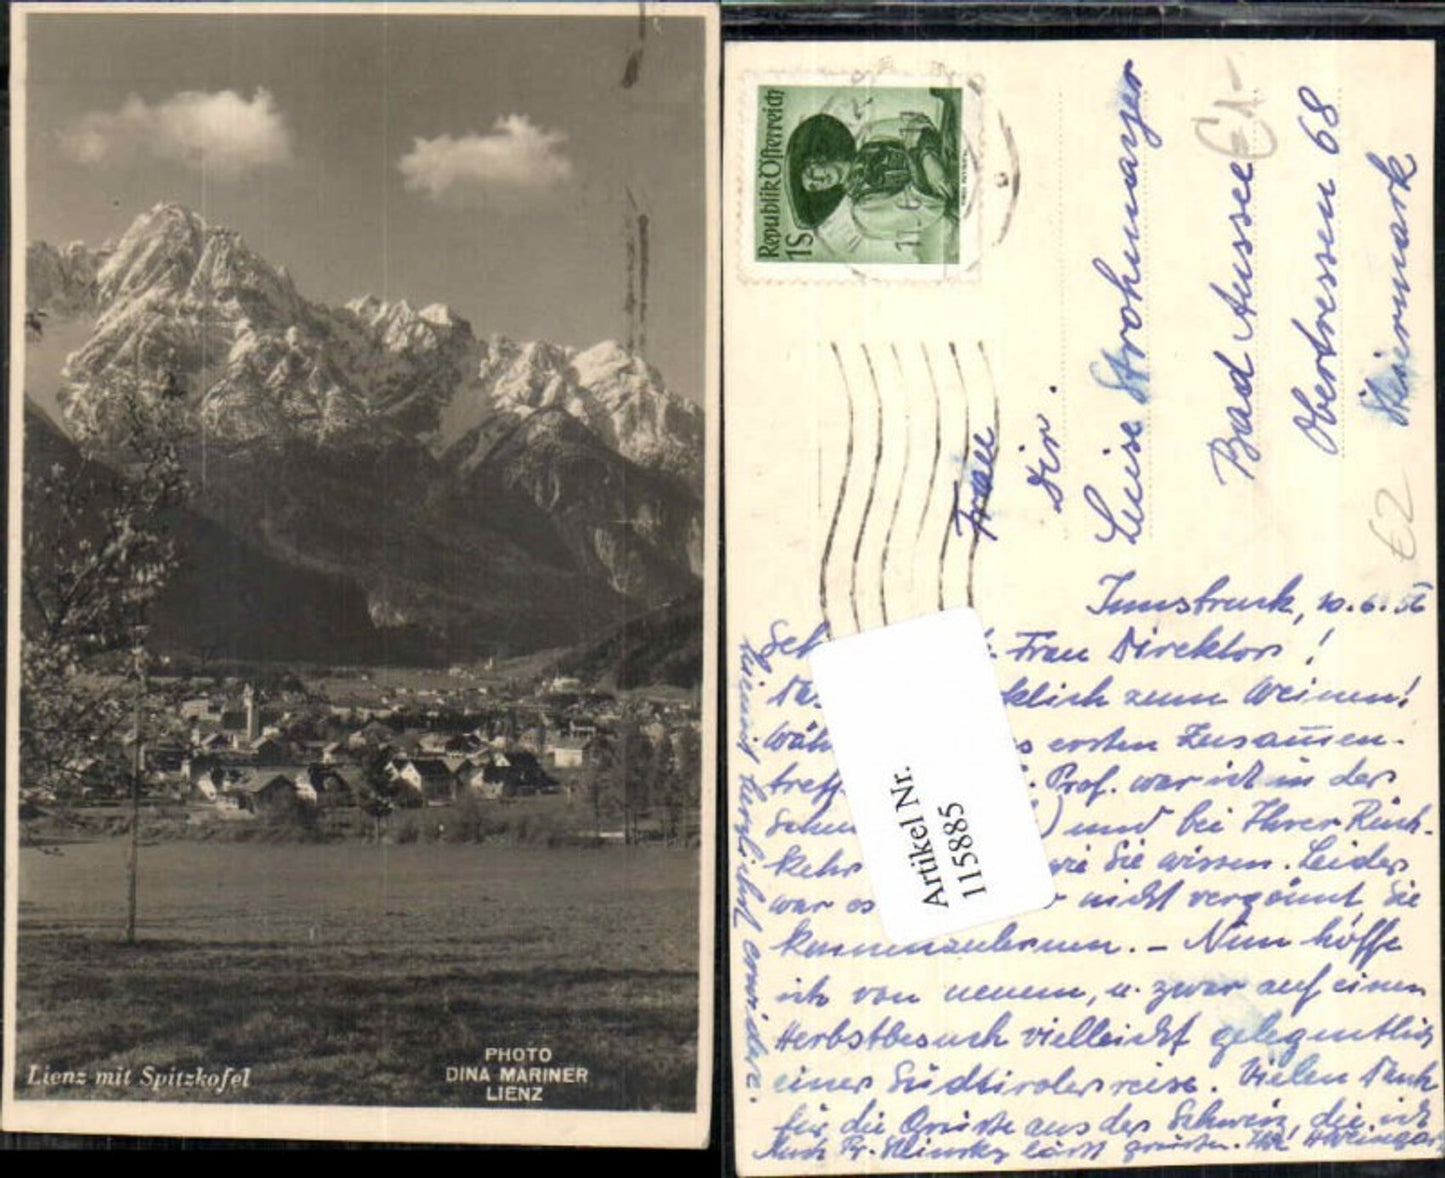 Lienz mit Spitzkofel
PHOTO
DINA MARINER
LIENZ
Republik Österreich
1S
11. 6.
€1-
€2
Frau
Dir.
Luise Strohmayer
Bad Aussee
Obertressen 68
Steiermark
Artikel Nr.
115885
Innsbruck, 10. 6. 56
Frau Direktor!
zum Weinen!
ersten Zusam̄en-
Prof. war ich in der
und bei Ihrer Rück-
kehr wie Sie wissen. Leider
war es nicht vergönnt Sie
kennenzulernen. – Nun hoffe
ich von neuem, u. zwar auf einen
Herbstbesuch vielleicht gelegentlich
einer Südtirolerreise. Vielen Dank
für die Grüsse aus der Schweiz, die ich
hiemit herzlichst erwidere.
Auch Fr. lässt grüssen. Ihr